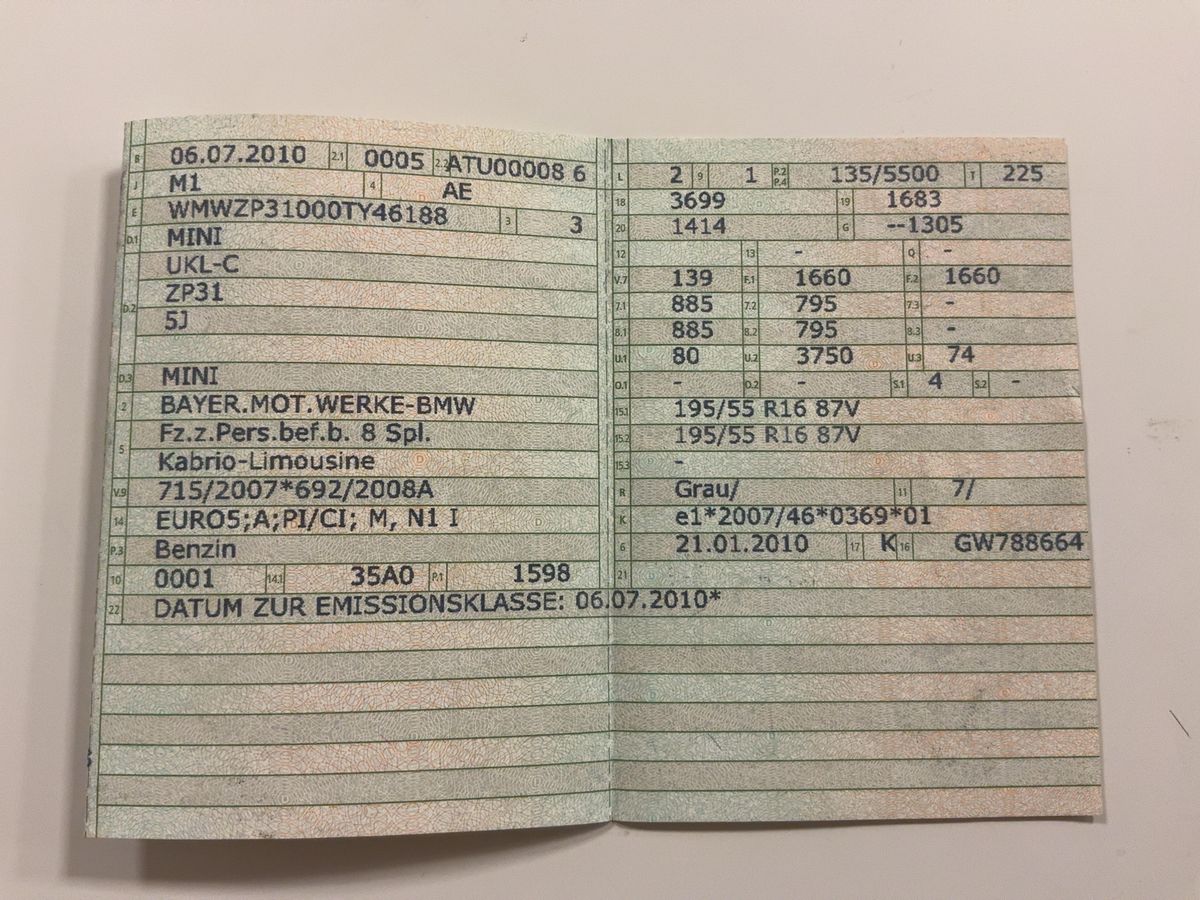 B 06.07.2010 2.1 0005 2.2 ATU00008 6
J M1 4 AE
E WMWZP31000TY46188 3 3
D.1 MINI
UKL-C
D.2 ZP31
5J
D.3 MINI
2 BAYER.MOT.WERKE-BMW
5 Fz.z.Pers.bef.b. 8 Spl.
Kabrio-Limousine
V.9 715/2007*692/2008A
14 EURO5;A;PI/CI; M, N1 I
P.3 Benzin
10 0001 14.1 35A0 P.1 1598
22 DATUM ZUR EMISSIONSKLASSE: 06.07.2010*
L 2 9 1 P.2 P.4 135/5500 T 225
18 3699 19 1683
20 1414 G --1305
12 13 - Q -
V.7 139 F.1 1660 F.2 1660
7.1 885 7.2 795 7.3 -
8.1 885 8.2 795 8.3 -
U.1 80 U.2 3750 U.3 74
O.1 - O.2 - S.1 4 S.2 -
15.1 195/55 R16 87V
15.2 195/55 R16 87V
15.3 -
R Grau/ 11 7/
K e1*2007/46*0369*01
6 21.01.2010 17 K 16 GW788664
21